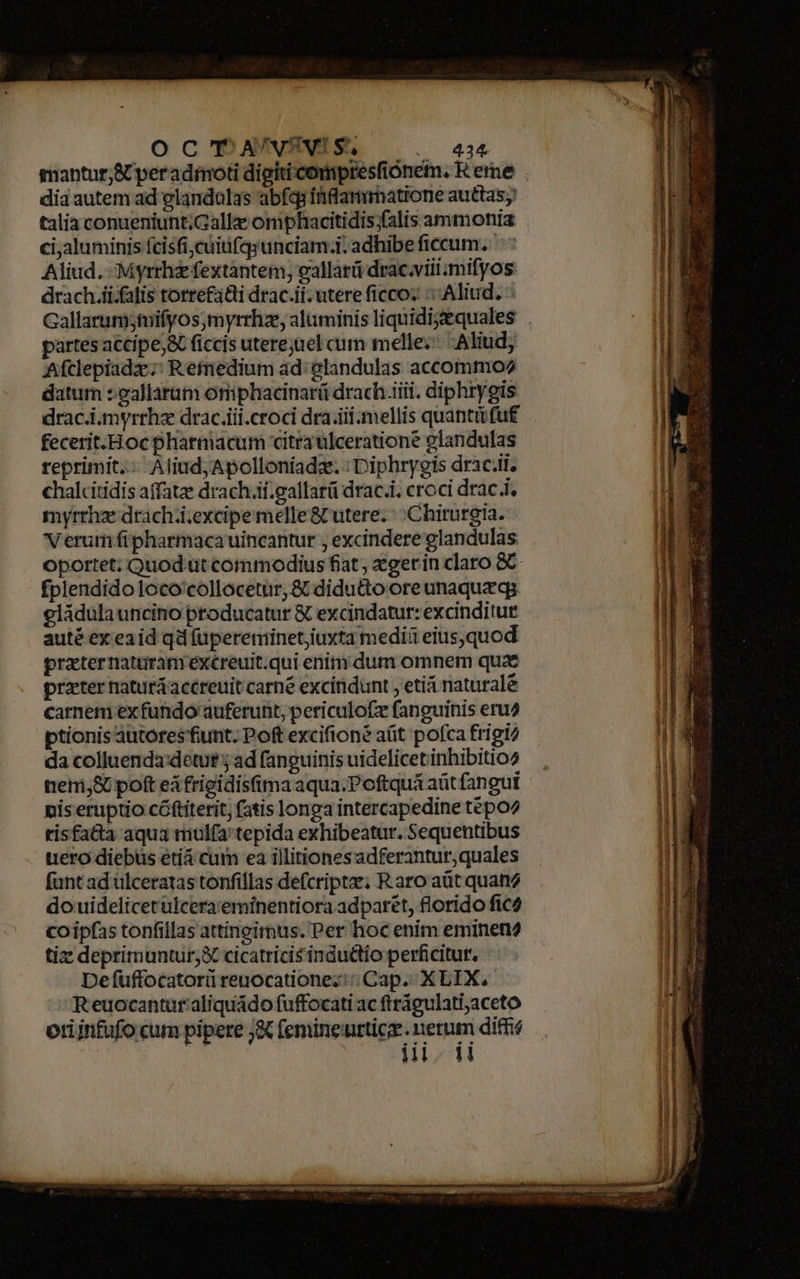 OCTAVVS. 434
mantur,& peradmoti digiti compresfionem. Reme
dia autem ad glandulas absq; inflammatione auctas,
talia conueniunt. Gallæ omphacitidis, salis ammonia
ci, aluminis scisfi, cuiusq; unciam.i. adhibe siccum.
Aliud. Myrrhæ sextantem, gallarū drac.viii. misyos
drach.ii. salis torrefacti drac.ii. utere sicco. Aliud.
Gallarum, misyos, myrrhæ, aluminis liquidi, æquales
partes accipe, & siccis utere, uel cum melle. Aliud,
Asclepiadæ. Remedium ad glandulas accommo-
datum: gallarum omphacinarū drach.iiii. diphrygis
drac.i. myrrhæ drac.iii. croci dra.iii. mellis quantū suf
fecerit. Hoc pharmacum citra ulcerationē glandulas
reprimit. Aliud, Apolloniadæ. Diphrygis drac.ii.
chalcitidis assatæ drach.ii. gallarū drac.i. croci drac.i.
myrrhæ drach.i. excipe melle & utere. Chirurgia.
Verum si pharmaca uincantur, excindere glandulas
oportet. Quod ut commodius fiat, æger in claro &
splendido loco collocetur, & diducto ore unaquæq;
glādula uncino producatur & excindatur: excinditur
autē ex ea id qd supereminet, iuxta mediū eius, quod
præter naturam excreuit. qui enim dum omnem quæ
præter naturā accreuit carnē excindunt, etiā naturalē
carnem ex fundo auferunt, periculosæ sanguinis eru-
ptionis autores fiunt. Post excisionē aūt posca frigi-
da colluenda detur, ad sanguinis uidelicet inhibitio-
nem, & post eā frigidisfima aqua. Postquā aūt sangui
nis eruptio cōstiterit, satis longa intercapedine tēpo-
ris facta aqua mulsa tepida exhibeatur. Sequentibus
uero diebus etiā cum ea illitiones adferantur, quales
sunt ad ulceratas tonsillas descriptæ. Raro aūt quan-
do uidelicet ulcera eminentiora adparēt, florido sic-
co ipsas tonsillas attingimus. Per hoc enim eminen-
tiæ deprimuntur, & cicatricis inductio perficitur.
De suffocatorū reuocatione. Cap. XLIX.
Reuocantur aliquādo suffocati ac strāgulati, aceto
ori infuso cum pipere, & semine urticæ. uerum diffi-
iii ii